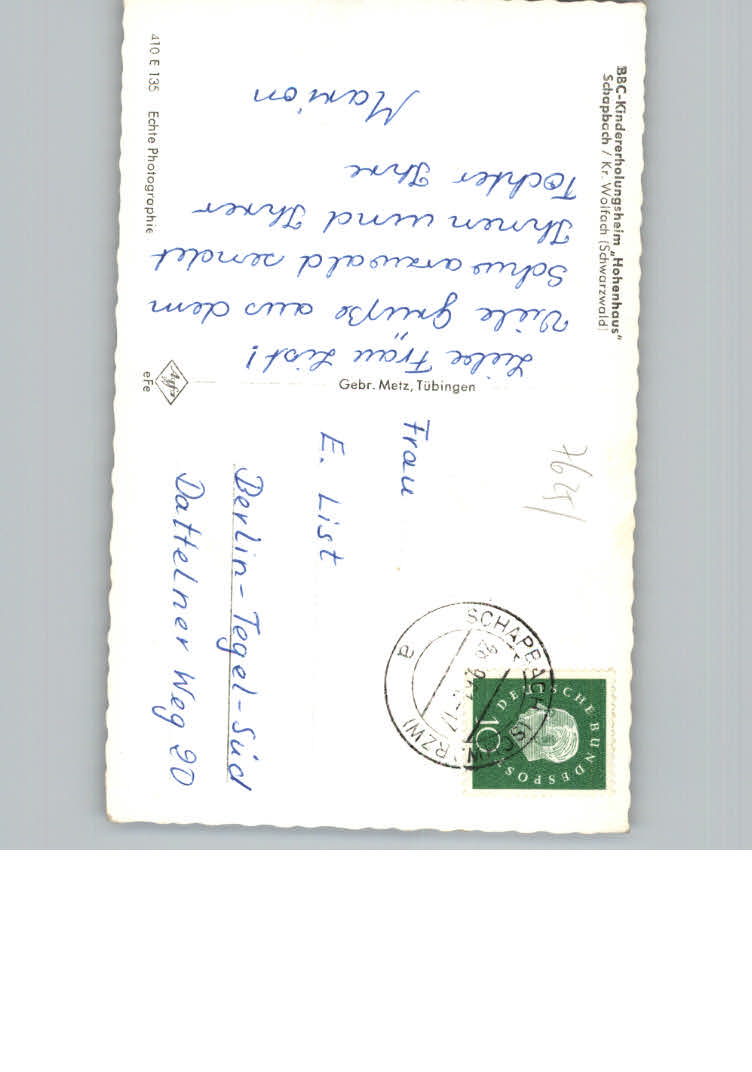 BBC-Kindererholungsheim „Hohenhaus"
Schapbach / Kr. Wolfach (Schwarzwald)
Liebe Frau List!
Viele Grüße aus dem
Schwarzwald sendet
Ihnen und Ihrer
Tochter Ihre
Marion
410 E 135 Echte Photographie
Agfa
eFe
Gebr. Metz, Tübingen
7625/
Frau
E. List
Berlin-Tegel-Süd
Dattelner Weg 20
SCHAPBACH (SCHWARZW)
a
DEUTSCHE BUNDESPOST
10